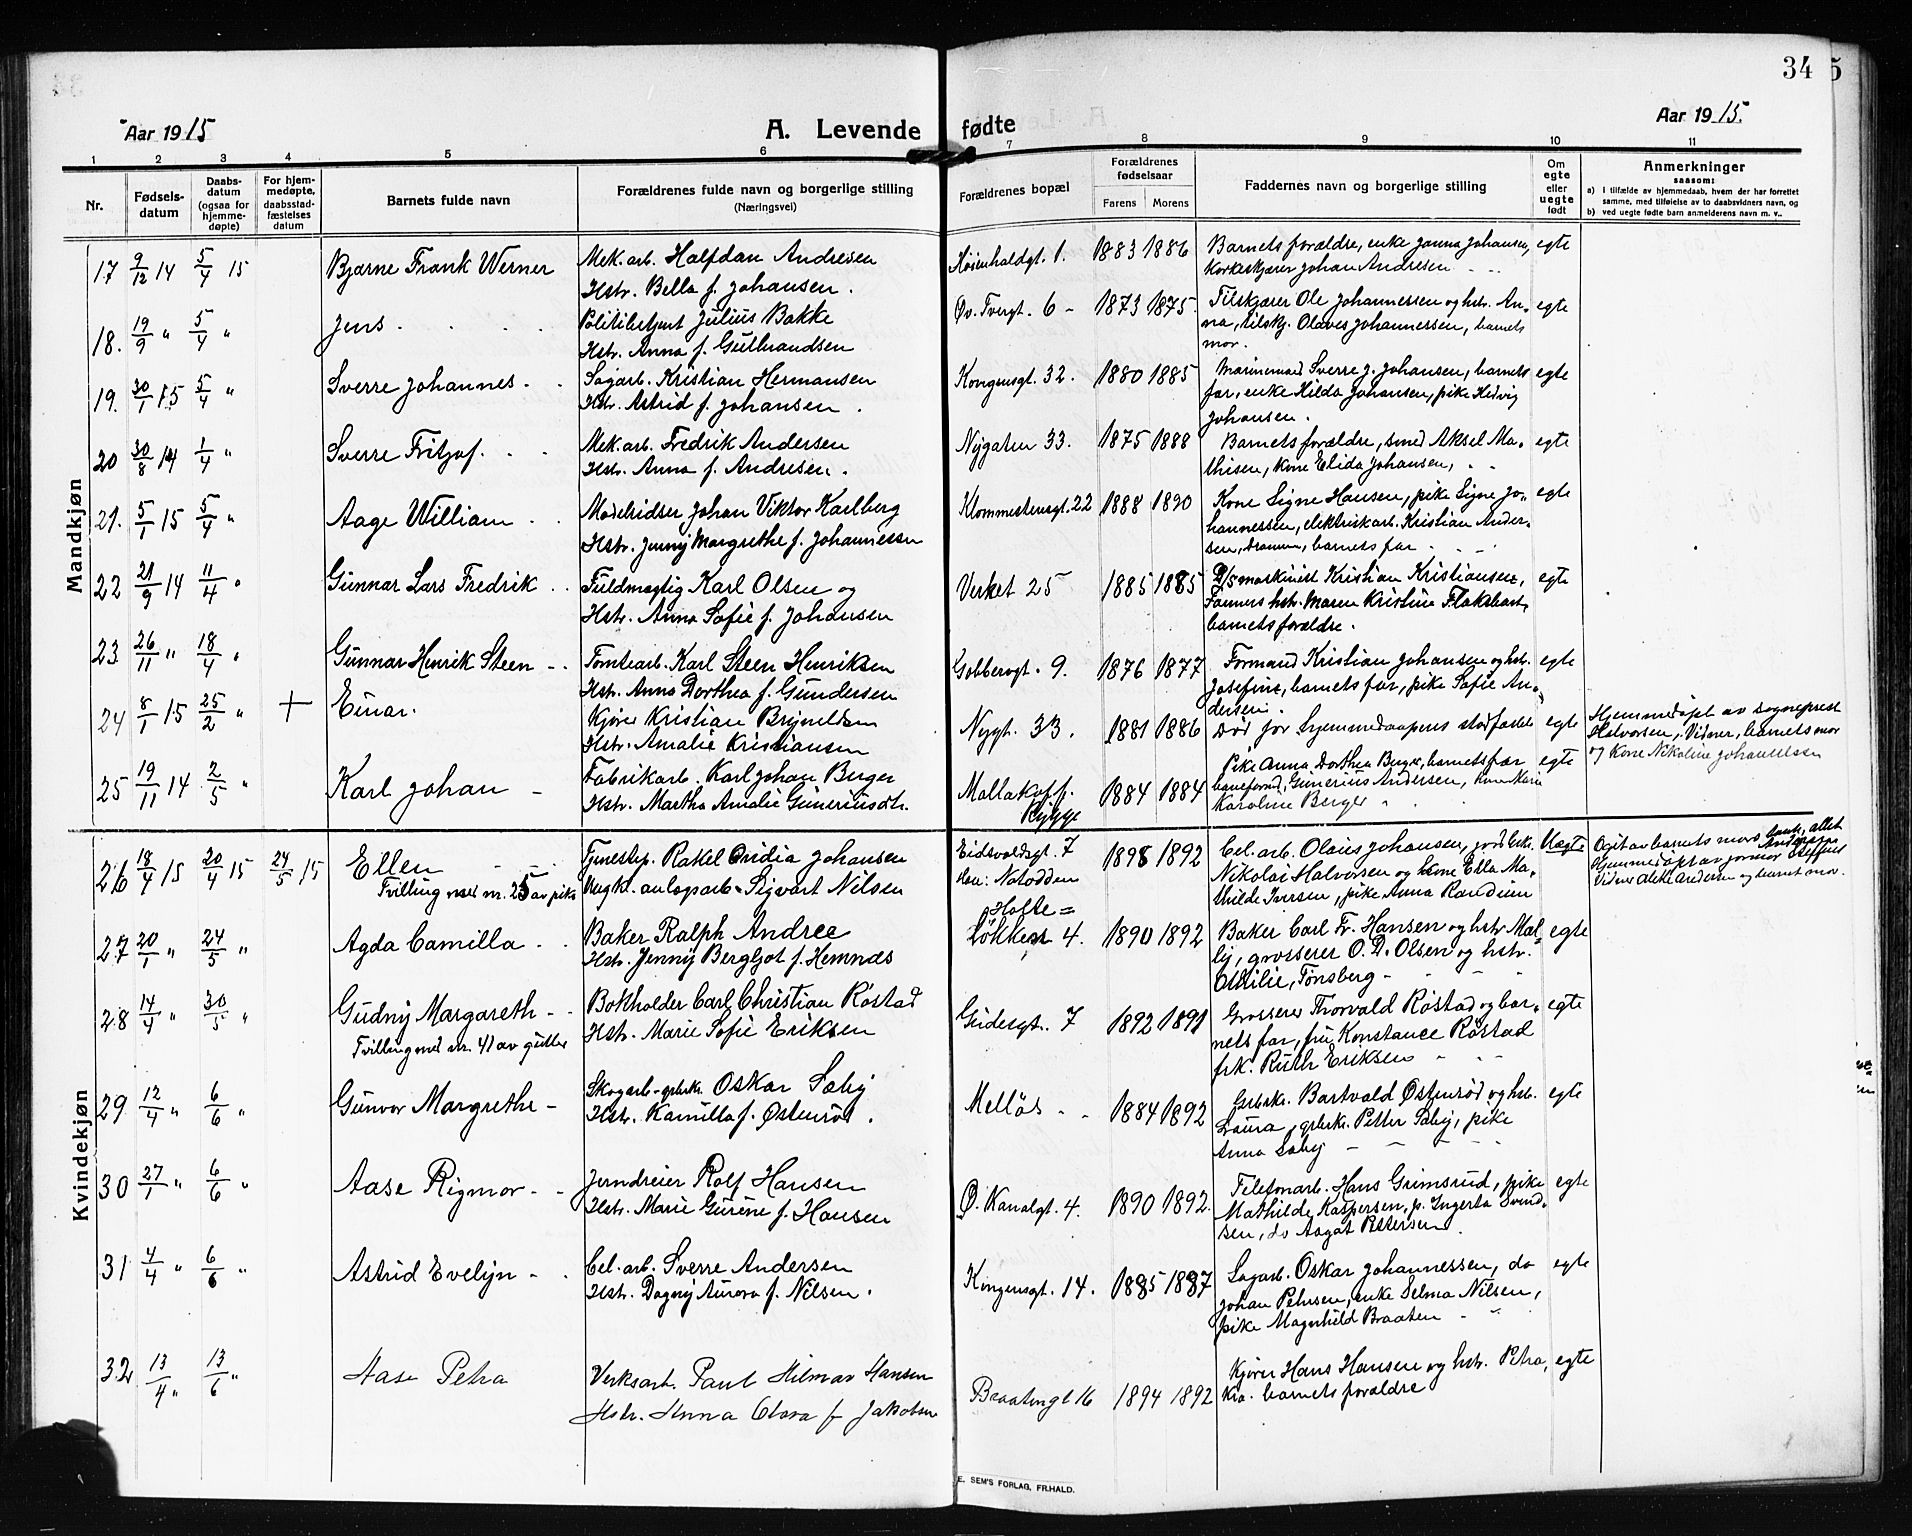 34
5
Aar 1915
A. Levende fødte
Aar 1915.
1 2 3 4 5 6 7 8 9 10 11
Nr.
Fødsels-
datum
Daabs-
datum
(ogsaa for
hjemme-
døpte)
For hjem-
medøpte,
daabsstad-
fæstelses
datum
Barnets fulde navn
Forældrenes fulde navn og borgerlige stilling
(Næringsvei)
Forældrenes bopæl
Forældrenes
fødselsaar
Farens Morens
Faddernes navn og borgerlige stilling
Om
egte
eller
uegte
født
Anmerkninger
saasom:
a) I tilfælde av hjemmedaab, hvem der har forrettet
samme, med tilføielse av to daabsvidners navn, og
b) ved uegte fødte barn anmelderens navn m. v..
Mandkjøn
17 9/12 14 5/4 15 Bjarne Frank Werner
Mek.arb. Halfdan Andresen
Hstr. Bella f. Johansen.
Høienhaldgt. 1. 1883 1886
Barnets forældre, enke Janna Johansen,
Korkeskjærer Johan Andresen
egte
18. 19/9 " 5/4 " Jens
Politibetjent Julius Bakke
Hstr. Anna f. Gulbrandsen
Øv. Tvergt. 6 1873 1875.
Filskjærer Ole Johannessen og hstr. An-
na, filskj. Olaves Johannessen, barnets
mor.
egte
19. 30/1 15 5/4 " Sverre Johannes
Sagarb. Kristian Hermansen
Hstr. Astrid f. Johansen.
Kongensgt. 32. 1880 1885
Marinemand Sverre J. Johansen, barnets
far, enke Hilda Johansen, pike Hedvig
Johansen.
egte
20 30/8 14 1/4 " Sverre Fritjof.
Mek.arb. Fredrik Andersen
Hstr. Anna f. Andresen.
Nygaten 33. 1875 1888
Barnets forældre, smed Aksel Ma-
thisen, kone Elida Johansen,
egte
21. 5/1 15 5/4 " Aage William
Modelsidser Johan Viktor Karlberg
Hstr. Jenny Margrethe f. Johannessen
Klommestensgt. 22 1888 1890
Kone Signe Hansen, pike Signe Jo-
hannessen, elektriskarb. Kristian Ander-
sen, Drammen, barnets far
egte
22 21/9 14 11/4 " Gunnar Lars Fredrik
Fuldmægtig Karl Olsen og
Hstr. Anna Sofie f. Johansen
Verket 25 1885 1885
D/S maskinist Kristian Kristiansen,
hstr. Maren Kristine
barnets forældre.
egte
23 26/11 " 18/4 " Gunnar Henrik Steen
Tomtearb. Karl Steen Henriksen
Hstr. Anna Dorthea f. Gundersen
Gobbervgt. 9. 1876 1877
Formand Kristian Johansen og hstr.
Josefine, barnets far, pike Sofie An-
dersen.
egte
24 8/1 15 25/2 " + Einar.
Kjører Kristian Brynildsen
Hstr. Amalie Kristiansen
Nygt. 33. 1881 1886
Død før hjemmedaapens stadfæstelse
egte
Hjemmedøpt av sogneprest
Halvorsen, Vidner, barnets mor
og Kone Nikoline Johannessen
25 19/11 14 2/5 " Karl Johan
Fabrikarb. Karl Johan Berger
Hstr. Martha Amalie Gunerius dtr.
Mallakoff p. Rygge 1884 1884
Pike Anna Dorthea Berger, barnets far
baneformd. Gunerius Andersen, kone Karin
Karoline Berger
egte
Kvindekjøn
26 18/4 15 20/4 15 24/5 15 Ellen
Tvilling med nr. 25 av pike
Tjenestep. Rakel Oridia Johansen
Ungk. anlegsarb. Sigvart Nilsen
Eidsvoldsgt. 7
Han: Notodden
1898 1892
Cel.arb. Olaus Johansen, jordbrk.
Nikolai Halvorsen og kone Ella Ma-
thilde Iversen, pike Anna Randum
Uegte
Opgit av barnets mors
Hjemmedøpt av jormor Steffens
27 20/1 " 24/5 " Agda Camilla
Baker Ralph Andree
Hstr. Jenny Bergljot f. Hemnæs
Holte=
løkken 4. 1890 1892
Baker Carl Fr. Hansen og hstr. Mal-
ly, grosserer O. D. Olsen og hstr.
Othilie, Tønsberg
egte
28 14/4 " 30/5 " Gudny Margareth
Tvilling med nr. 41 av gutter
Bokholder Carl Christian Røstad
Hstr. Marie Sofie Eriksen
Gudesgt. 7 1892 1891
Grosserer Thorvald Røstad og bar-
nets far, fru Konstance Røstad
frk. Ruth Eriksen
egte
29 12/4 " 6/6 " Gunvor Margrethe
Skogarb. grbrk. Oskar Saby
Hstr. Kamilla f. Østenrød.
Melløs 1884 1892
Grbrk. Bartvald Østenrød og hstr.
Laura, grbrk. Petter Saby, pike
Anna Saby
egte
30 27/1 " 6/6 " Aase Rigmor
Jerndreier Rolf Hansen
Hstr. Marie Gurine f. Hansen
Ø. Kanalgt. 4. 1890 1892.
Telefonarb. Hans Grimsrud, pike
Mathilde Kaspersen, p. Ingerta Svend-
sen, do Aagot Pettersen.
egte
31 4/4 " 6/6 " Astrid Evelyn
Cel.arb. Sverre Andersen
Hstr. Dagny Aurora f. Nilsen.
Kongensgt. 14. 1885 1887
Sagarb. Oskar Johannessen, do
Johan Petersen, enke Selma Nilsen,
pike Magnhild Braaten
egte
32 13/4 " 13/6 " Aase Petra
Verksarb. Paul Hilmar Hansen
Hstr. Anna Clara f Jakobsen
Braatengt 16 1894 1892
Kjører Hans Hansen og hstr. Petra,
Kra. barnets forældre
egte
E. SEM'S FORLAG, FR.HALD.